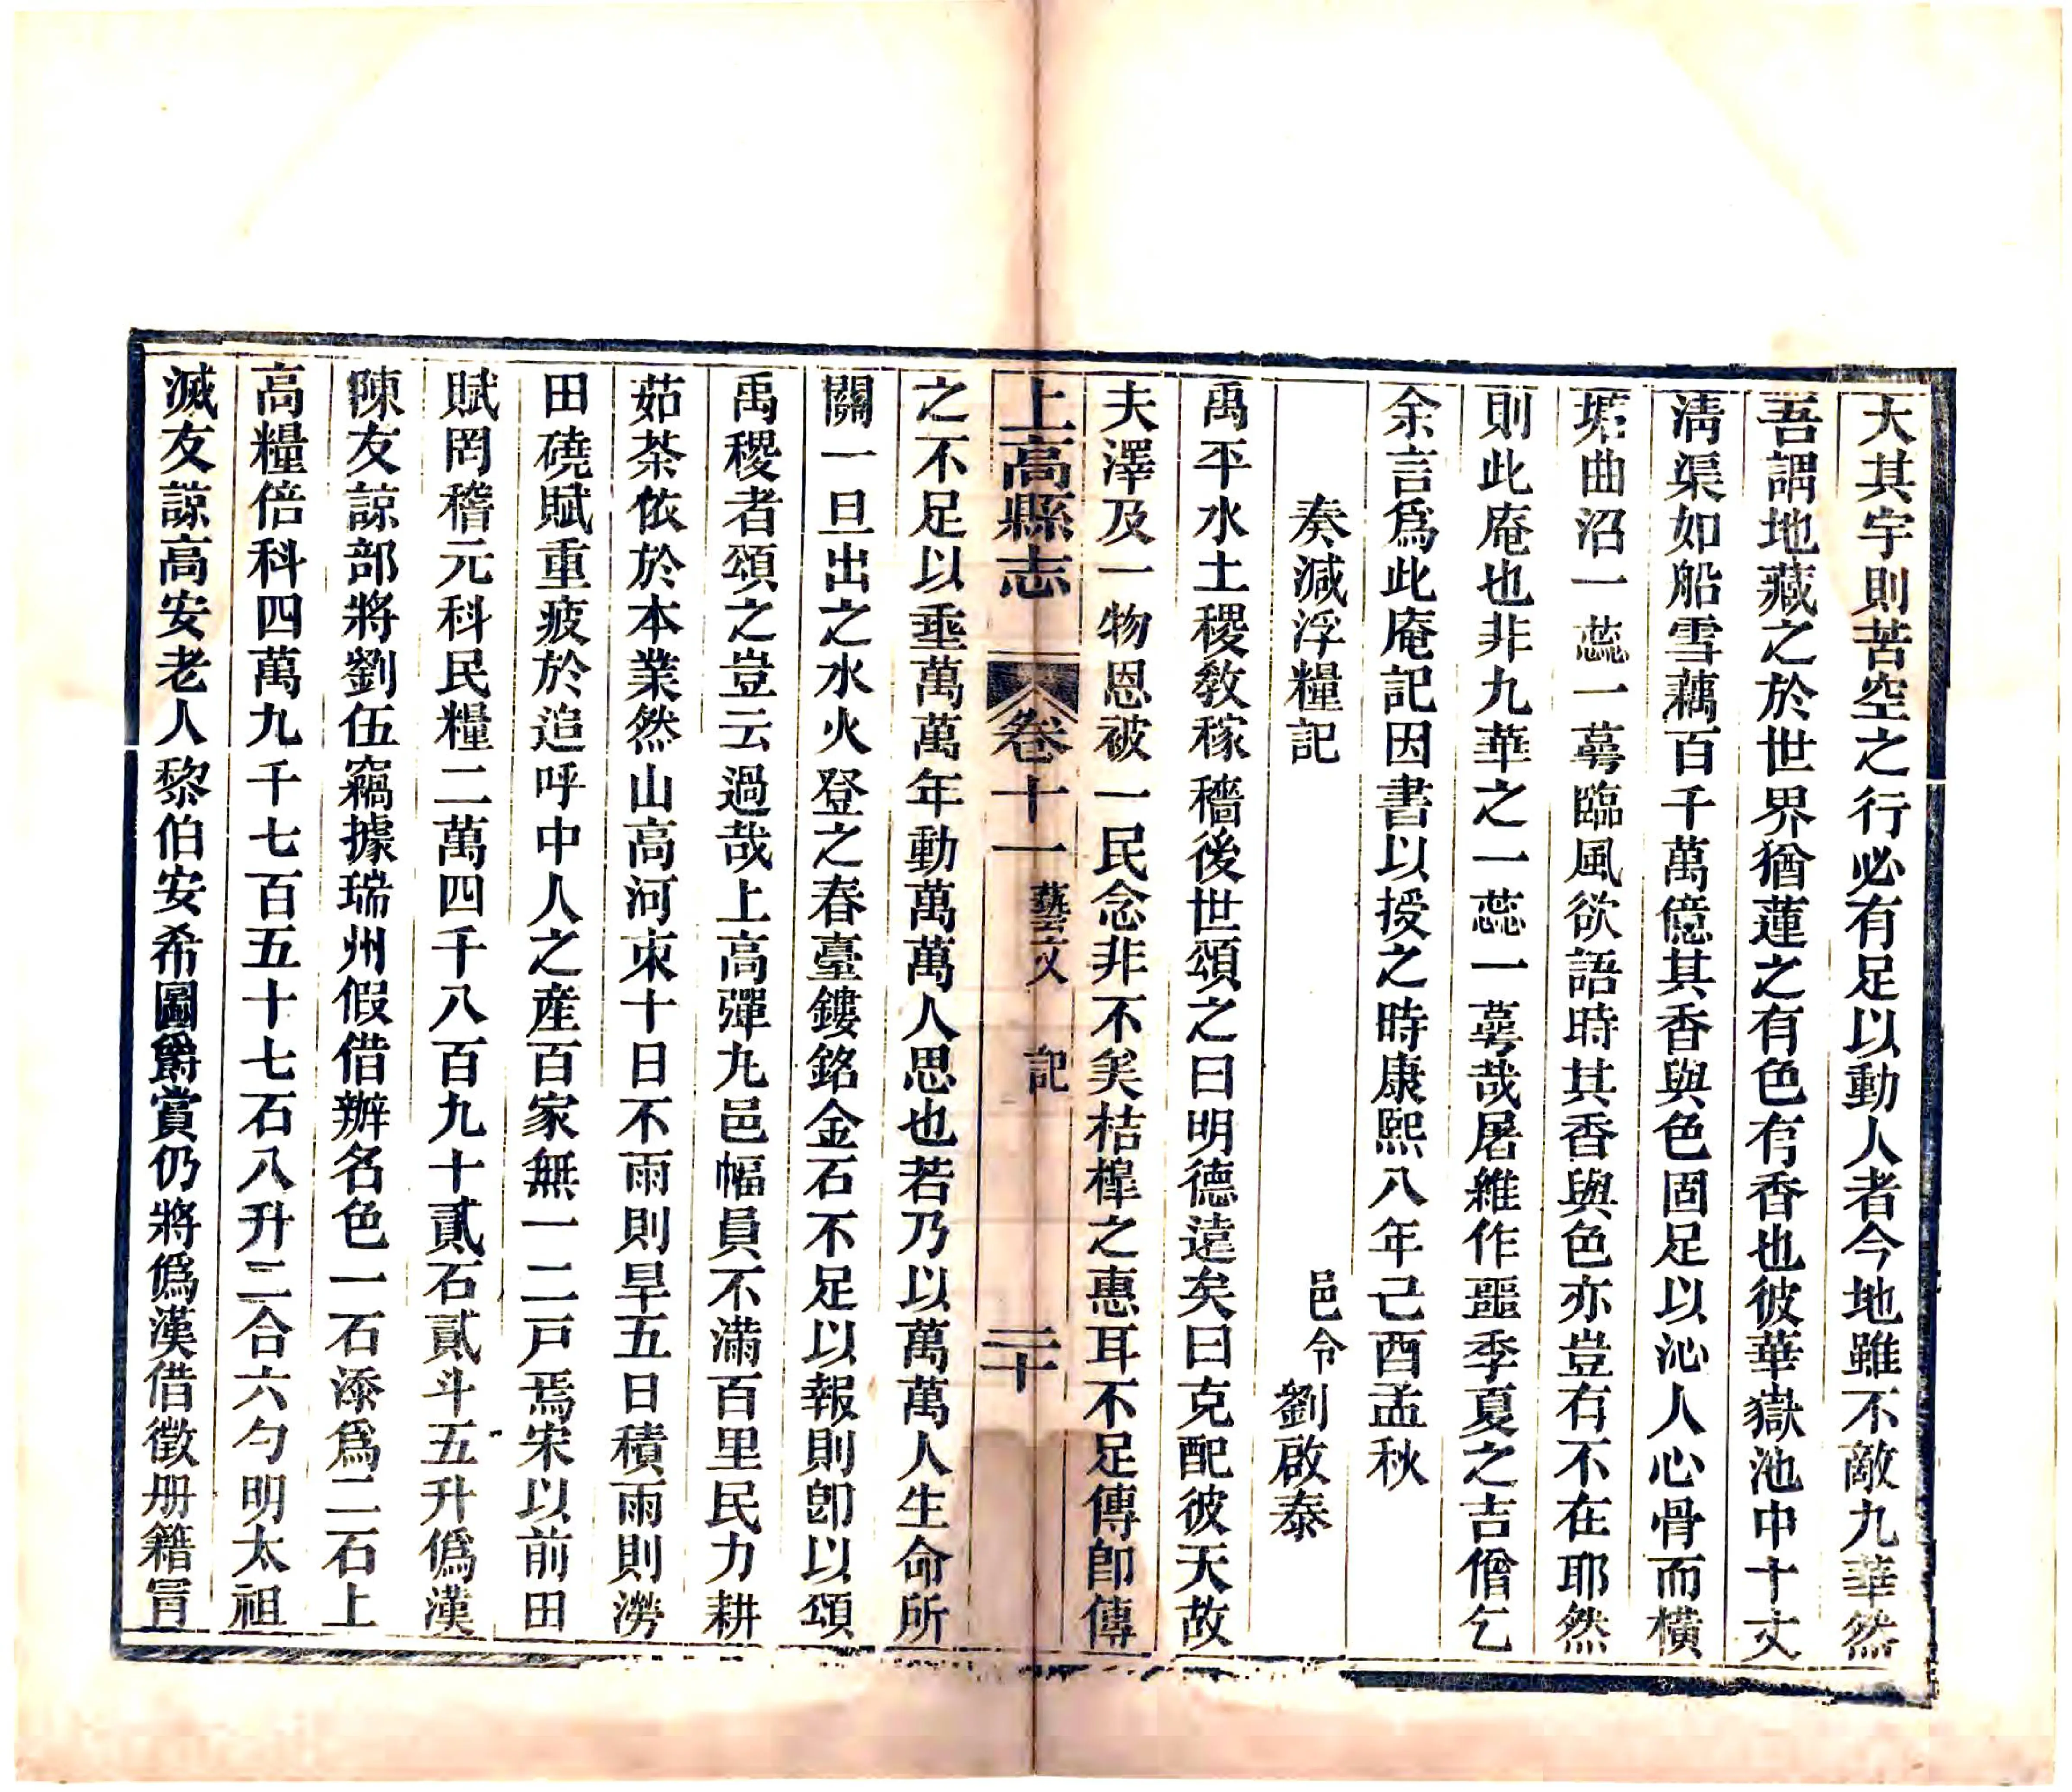 大其宇則苦空之行必有足以動人者今地雖不敵九華然
吾謂地藏之於世界猶蓮之有色有香也彼華嶽池中十丈
淸渠如船雪藕百千萬億其香與色固足以沁人心骨而橫
塘曲沼一蕊一蕚臨風欲語時其香與色亦豈有不在耶然
則此庵也非九華之一蕊一蕚哉屠維作噩季夏之吉僧乞
余言爲此庵記因書以授之時康熙八年己酉孟秋
奏減浮糧記
邑令劉啟泰
禹平水土稷敎稼穡後世頌之曰明德遠矣曰克配彼天故
夫澤及一物恩被一民念非不矣桔槔之惠耳不足傳卽傳
上高縣志 卷十一 藝文 記 二十
之不足以垂萬萬年動萬萬人思也若乃以萬萬人生命所
關一旦出之水火登之春臺鏤銘金石不足以報則卽以頌
禹稷者頌之豈云過哉上高彈丸邑幅員不滿百里民力耕
茹荼依於本業然山高河束十日不雨則旱五日積雨則澇
田磽賦重疲於追呼中人之產百家無一二戸焉宋以前田
賦罔稽元科民糧二萬四千八百九十貳石貳斗五升僞漢
陳友諒部將劉伍竊據瑞州假借辦名色一石添爲二石上
高糧倍科四萬九千七百五十七石八升二合六勺明太祖
滅友諒高安老人黎伯安希圖爵賞仍將僞漢借徵册籍冐